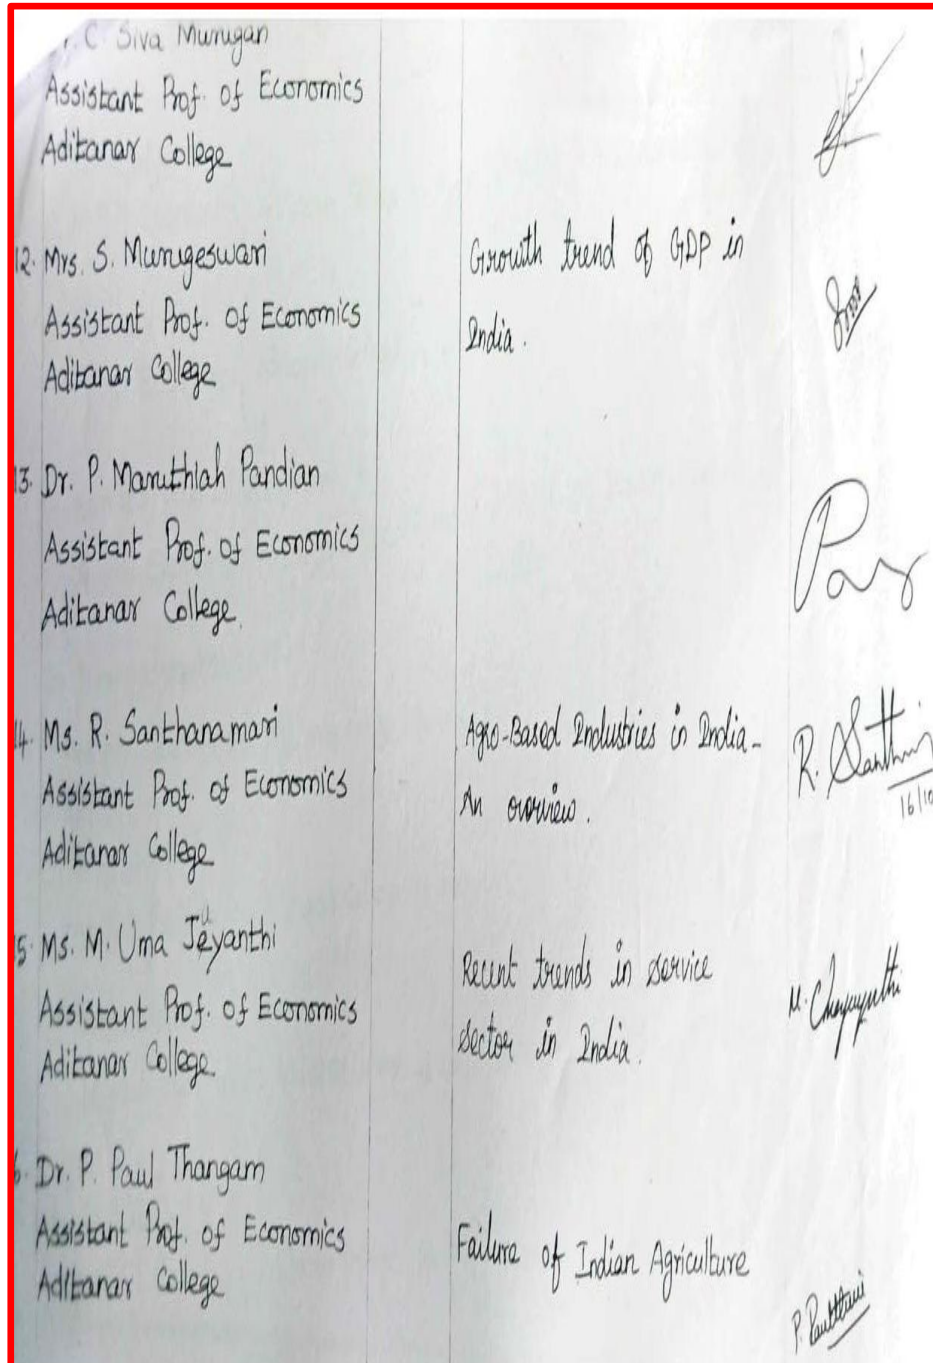 C. Siva Murugan
Assistant Prof. of Economics
Aditanar College
12. Mrs. S. Murugeswari
Assistant Prof. of Economics
Aditanar College
Growth trend of GDP in
India.
13. Dr. P. Maruthiah Pandian
Assistant Prof. of Economics
Aditanar College.
4. Ms. R. Santhanamari
Assistant Prof. of Economics
Aditanar College
Agro-Based Industries in India-
An overview.
R. Santhan
16/10
5. Ms. M. Uma Jeyanthi
Assistant Prof. of Economics
Aditanar College
Recent trends in service
sector in India.
6. Dr. P. Paul Thangam
Assistant Prof. of Economics
Aditanar College
Failure of Indian Agriculture